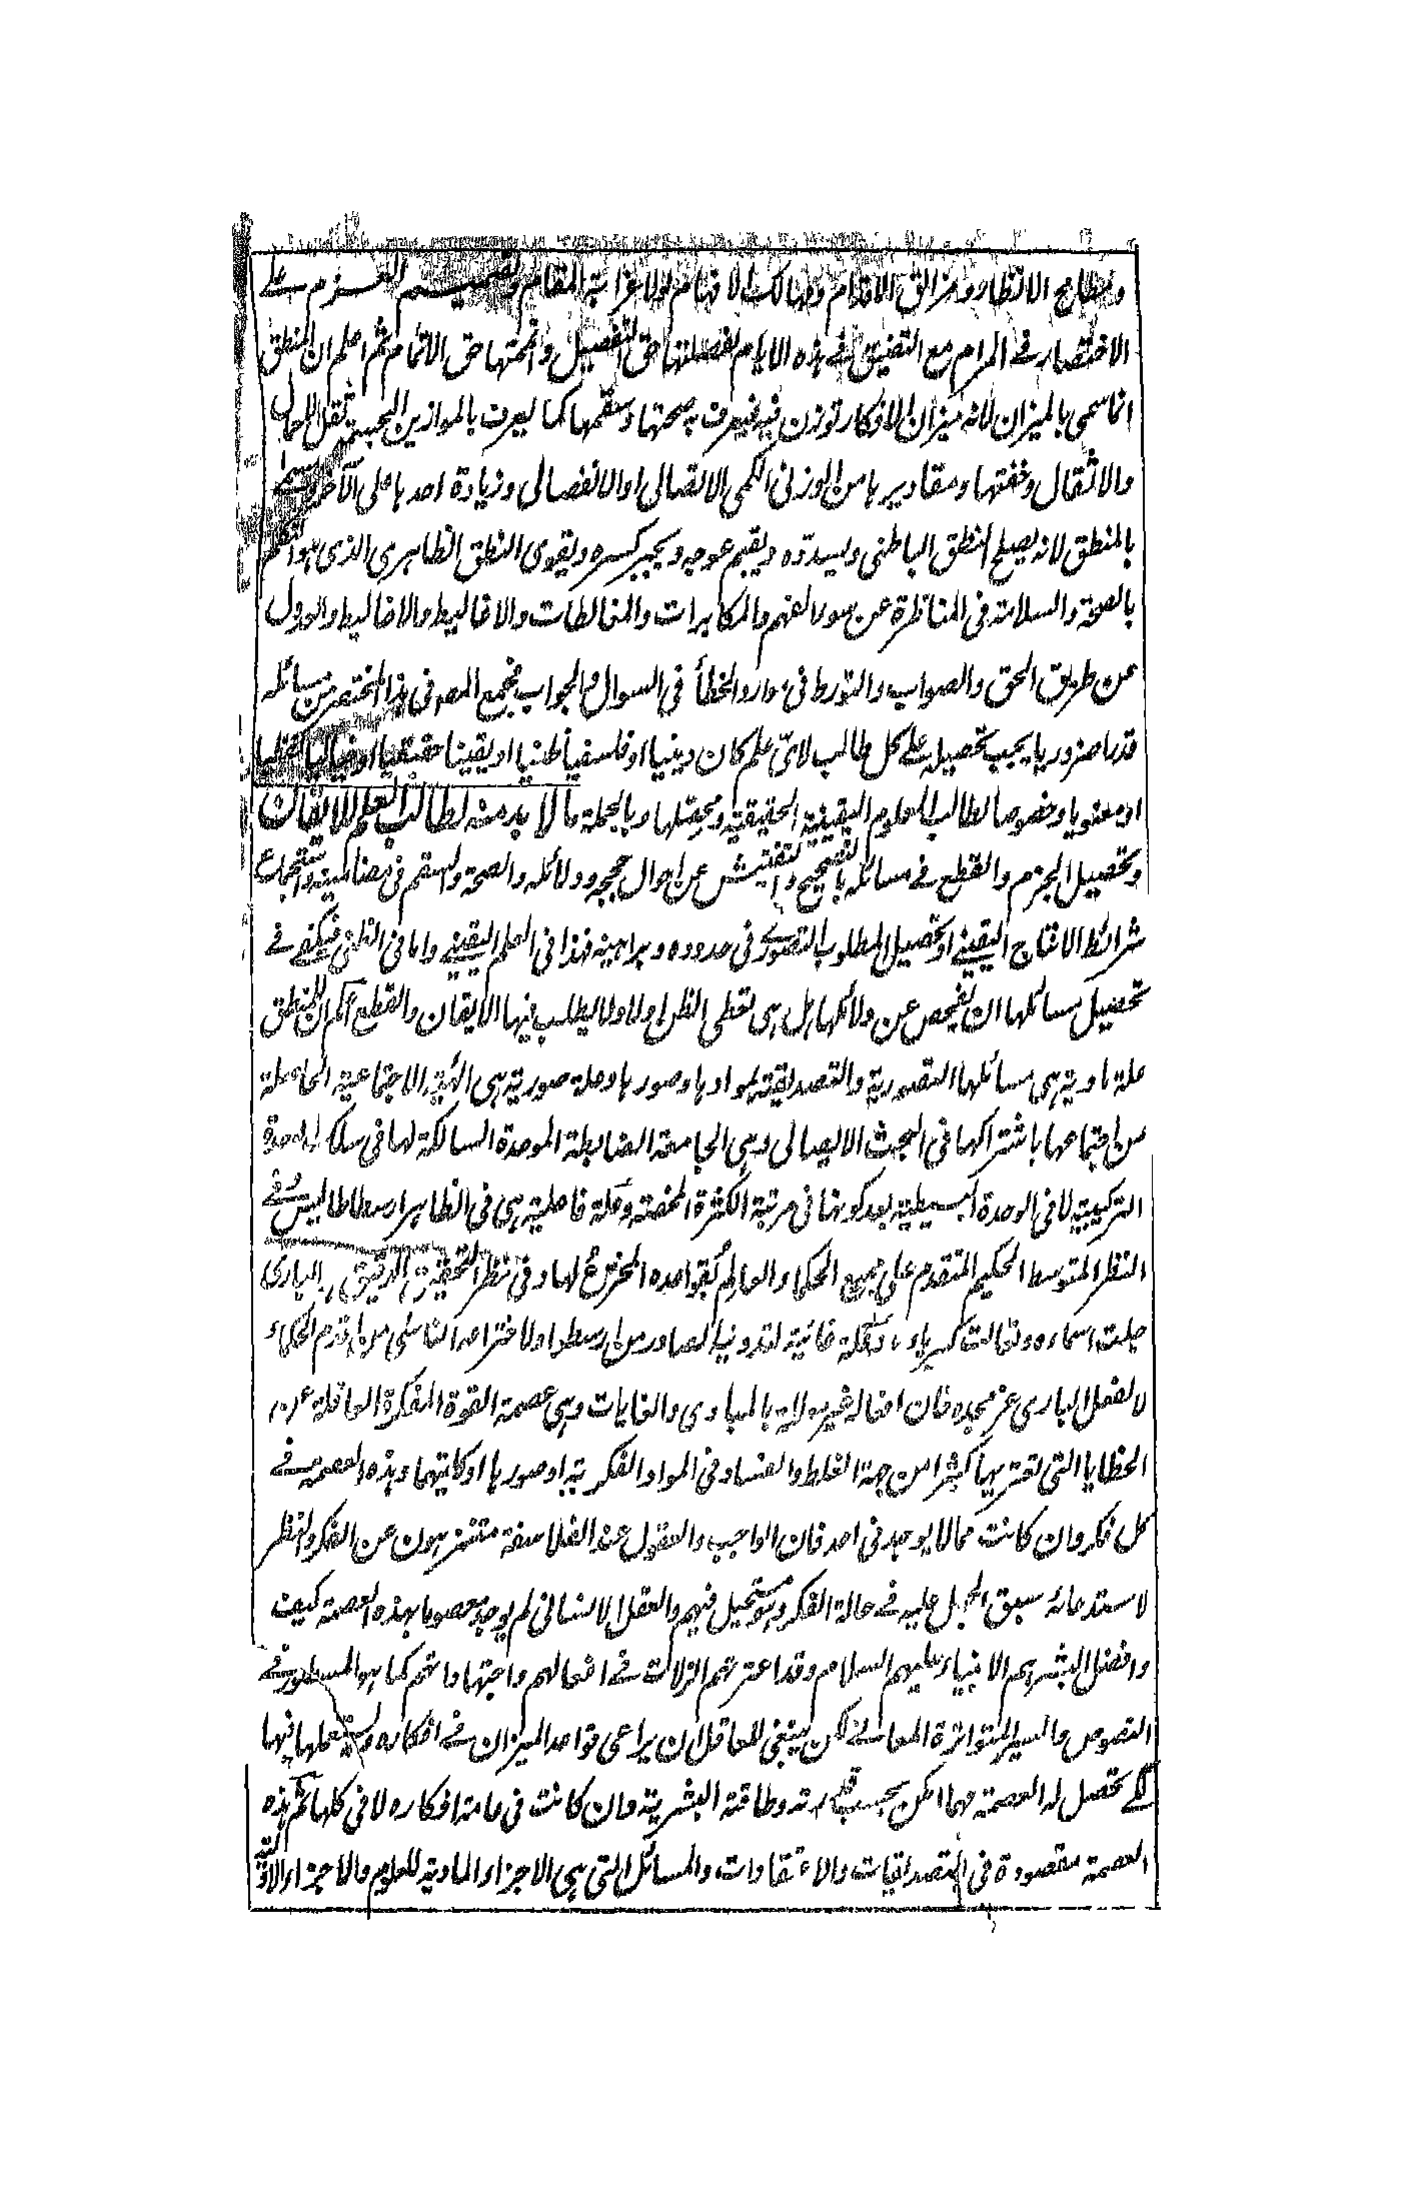 ومطارح الانظار ومزالق الاقدام ومهالك الافهام لولا غرابة المقام وتصميم العزم على
الاختصار في المرام مع التضيق في هذه الايام لفصلتها حق التفصيل واتممتها حق الاتمام ثم اعلم ان المنطق
انما سمى بالميزان لانه ميزان الافكار توزن فيه فيعرف به صحتها وسقمها كما يعرف بالموازين الحسية ثقل الاحمال
والاثقال وخفتها ومقاديرها من الوزني الكمى الاتصالى او الانفصالى وزيادة احدها على الآخر وسمى
بالمنطق لانه يصلح النطق الباطنى ويسدده ويقيم عوجه ويجبر كسره ويقوى النطق الظاهرى الذى هو التكلم
بالصحة والسلامة فى المناظرة عن سوء الفهم والمكابرات والمغالطات والاغاليط والاخاليط والعدول
عن طريق الحق والصواب والتورط فى موارد الخطأ فى السوال والجواب فجمع المصـ فى هذا المختصر من مسائله
قدرا ضروريا يجب تحصيله على كل طالب لاىّ علم كان دينيا او فلسفيا ظنيا او يقينيا حقيقيا او خياليا لفظيا
او معنويا وخصوصا لطالب العلوم اليقينية الحقيقية ومحصلها وبالجملة ما لا بد منه لطالب العلم للاتقان
وتحصيل الجزم والقطع فے مسائله بالتصحيح والتفتيش عن احوال حججه ودلائله والصحة والسقم فى مضامينه واجتماع
شرائط الانتاج اليقينے او تحصيل المطلوب التصورے فى حدوده وبراهينه فهذا فى العلم اليقينے واما فى الظنى فيكفے فے
تحصيل مسائلها ان يفحص عن دلائلها هل هى تعطى الظن اولا ولا يطلب فيها الايقان والقطع ثم ان للمنطق
علة مادية هى مسائلها التصورية والتصديقية بموادها وصورها وعلة صورية هى الهيئة الاجتماعية الحاصلة
من اجتماعها باشتراكها فى البحث الايصالى وهى الجامعة الضابطة الموحدة السالكة لها فى سلك الوحدة
التركيبية لا فى الوحدة البسيطية بعد كونها فى مرتبة الكثرة المحضة وعلة فاعلية هى فى الظاهر ارسطاطاليس وفے
النظر المتوسط الحكيم المتقدم على جميع الحكماء والعالم بقواعده المخترع لها وفى نظر التحقيق الدقيق البارى
جلت اسماءه وتعالت كبرياءه وعلة غائية لتدوينه الصادر من ارسطو او لاختراعه الناشى من اقدم الحكماء
لا لفعل البارى عز مجده فان افعاله غير معللة بالمبادى والغايات وهى عصمة القوة المفكرة العاقلة عن
الخطايا التى تعتريها كثيرا من جهة الغلط والفساد فى المواد الفكرية او صورها او كليتهما وهذه العصمة فے
كل فكر وان كانت مما لا يوجد فى احد فان الواجب والعقول عند الفلاسفة متنزهون عن الفكر والنظر
لاستدعائه سبق الجهل عليه فے حالة الفكر وهو مستحيل فيهم والعقل الانسانى لم يوجد معصوما بهذه العصمة كيف
وافضل البشر هم الانبياء عليهم السلام وقد اعترتهم الزلات فے افعالهم واجتهاداتهم كما هو المسطور فے
النصوص والسير المتواترة المعانے لكن ينبغى للعاقل ان يراعى قواعد الميزان فے افكاره ويستعملها فيها
لكے تحصل له العصمة مهما امكن بحسب قدرته وطاقته البشرية وان كانت فى عامة افكاره لا فى كلها ثم هذه
العصمة مقصودة فى التصديقات والاعتقادات والمسائل التى هى الاجزاء المادية للعلوم والاجزاء الاولية